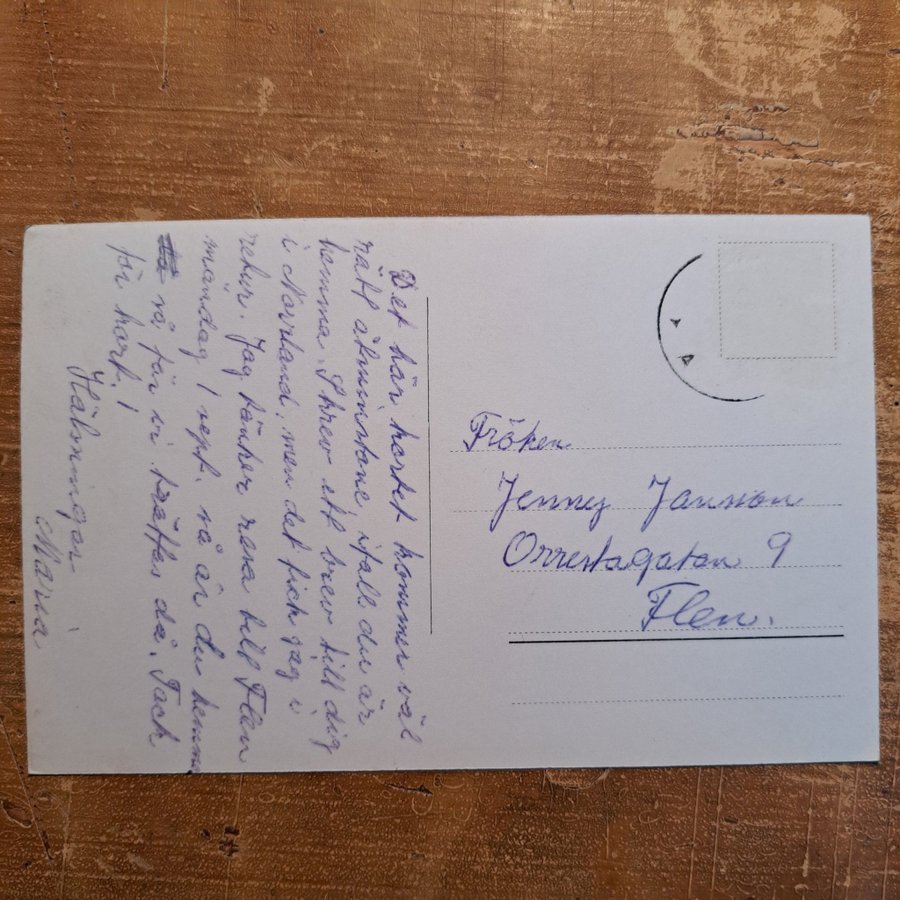 Det här kortet kommer väl
rätt åtminstone, ifall du är
hemma. Skrev ett brev till dig
i Norrland, men det fick jag i
retur. Jag tänker resa till Flen
måndag 1 sept. så är du hemma
så får vi träffas då. Tack
för kort!
Hälsningar
Maria
Fröken
Jenny Jansson
Orrestagatan 9
Flen.